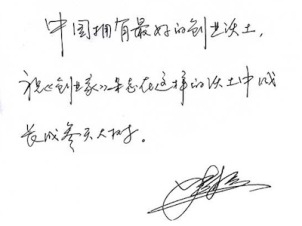 中国拥有最好的创业沃土，
祝《创业家》杂志在这样的沃土中成
长成参天大树。